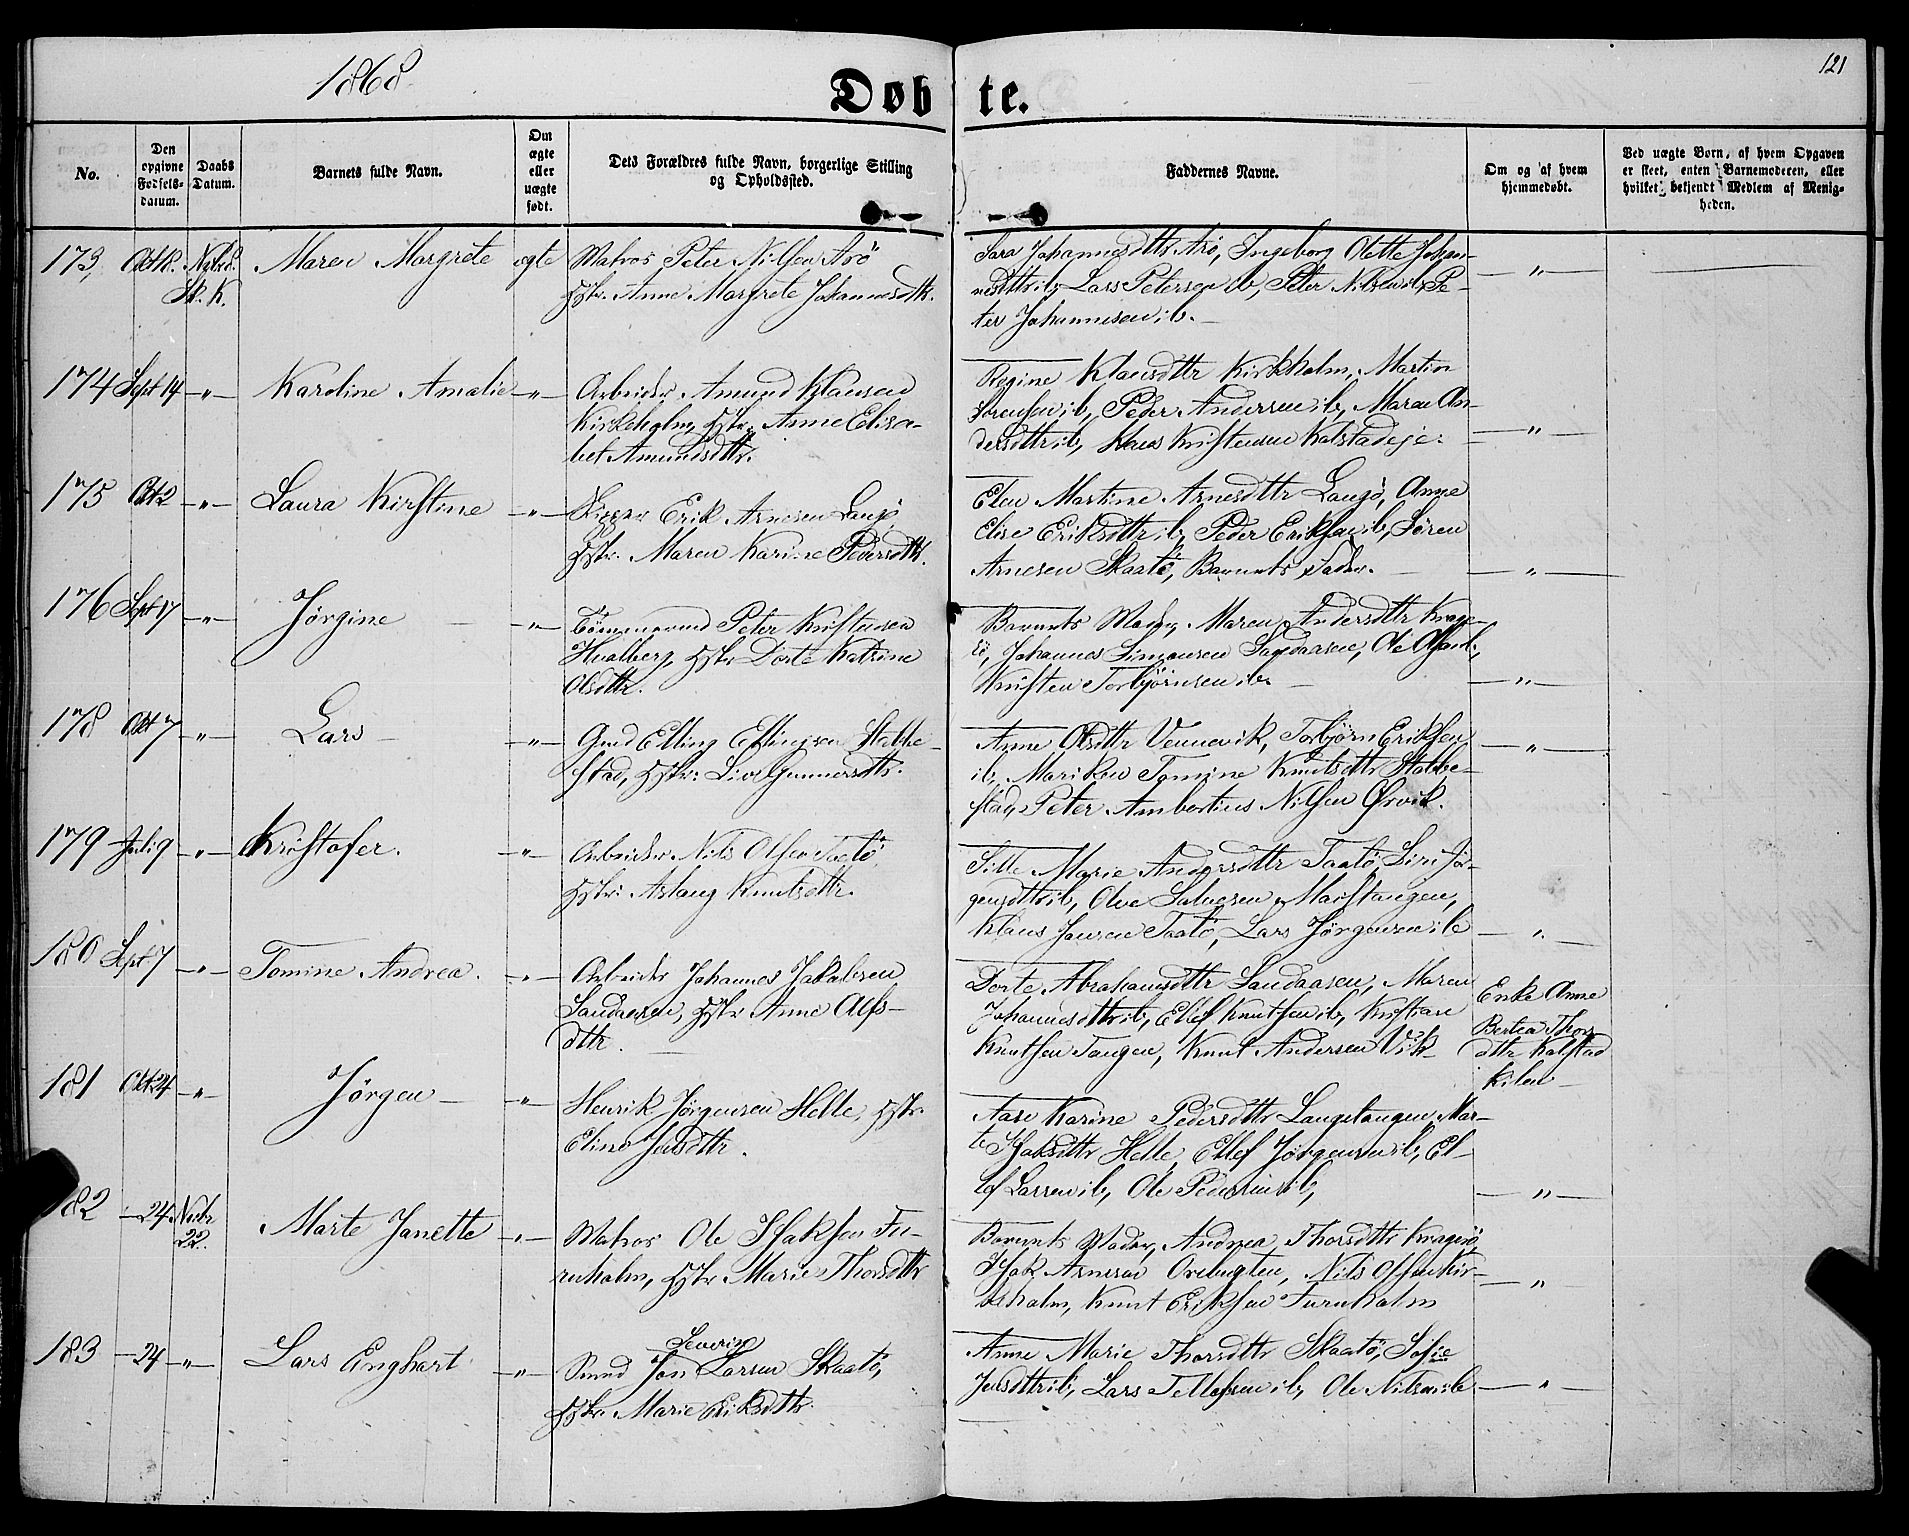 1868
121
Døbte.
No.
Den opgivne Fødsels-datum.
Daabs Datum.
Barnets fulde Navn.
Om ægte eller uægte født.
Dets Forældres fulde Navn, borgerlige Stilling og Opholdssted.
Faddernes Navne.
Om og af hvem hjemmedøbt.
Ved uægte Børn, af hvem Opgaven er skeet, enten Barnemoderen, eller hvilket bekjendt Medlem af Menigheden.
173
Sk. K.
Maren Margrete
ægte
Matros Peter Nilsen Arø
Hstr. Anne Margrete Johannesdtr.
Sara Johannesdttr Arø, Ingeborg Olette Johan-
nesdttr ib, Lars Petersen ib, Peter Nilsen ib, Pe-
ter Johannesen ib. —
— " —
174
Sept 14
— " —
Karoline Amalie
— " —
Arbeider Amund Klausen
Kirkeholm, Hstr. Anne Elisa-
bet Amundsdttr.
Regine Klausdttr Kirkholm, Martin
Sørensen ib, Peder Andersen ib, Maren An-
dersdttr ib, Hans Kristensen Kalstadeje.
— " —
175
Okt 2
— " —
Laura Kirstine
— " —
Skipper Erik Arnesen Langø
Hstr. Maren Karine Pedersdttr.
Elen Martine Arnesdttr Langø, Anne
Elise Eriksdttr ib, Peder Eriksen ib, Søren
Arnesen Skaatø, Barnets Fader. —
— " —
176
Sept 17
— " —
Jørgine
— " —
Tømmermand Peter Kristensen
Hualberg, Hstr Dorte Katrine
Olsdttr.
Barnets Moder, Maren Andersdttr Krage-
rö, Johannes Simonsen Sandaasen, Ole
Kristen Torbjörnsen ib.
— " —
178
Okt 7
— " —
Lars
— " —
Gmd Elling Ellingsen Stabbe-
stad, Hstr: Live Gunnersdttr.
Anne Olsdttr Vennevik, Torbjørn Eriksen
ib, Mariken Tomine Knutsdttr Stabbe-
stad, Peter Ambortius Nilsen Ørvik.
— " —
179
Juli 9
— " —
Kristofer.
— " —
Arbeider Nils Olsen Taatö
Hstr: Aslaug Knutsdttr.
Sille Marie Andersdttr Taatö, Siri Jör-
gensdttr ib, Ole Salvesen Maistangen,
Klaus Jensen Taatö, Lars Jörgensen ib
— " —
180
Sept 7
— " —
Tomine Andrea.
— " —
Arbeider Johannes Jakobsen
Sandaasen, Hstr Anne Alfs-
dttr.
Dorte Abrahamsdttr Sandaasen, Maren
Johannesdttr ib, Ellef Knutsen ib, Kristian
Knutsen Tangen, Knut Andersen Vik
Enke Anne
Bertea Thors
dttr Kalstad
kilen —
181
Okt 24
— " —
Jørgen —
— " —
Henrik Jørgensen Helle, Hstr.
Eline Jensdttr.
Aase Karine Pedersdttr Langetangen, Mar-
te Isaksdttr Helle, Ellef Jørgensen ib, El-
lef Larsen ib, Ole Pedersen ib,
— " —
182
— 24
Novbr
22.
Marte Janette
— " —
Matros Ole Isaksen Fu-
ruholm, Hstr Marie Thorsdttr
Barnets Moder, Andrea Thorsdttr Kragerø,
Isak Arnesen Orebugten, Nils Olsen Kir-
keholm, Knut Eriksen Furuholm
— " —
183
— 24
— " —
Lars Enghart
— " —
Severin
Smed Jon Larsen Skaatö,
Hstr Marie Eriksdttr.
Anne Marie Thorsdttr Skaatö, Sofie
Jensdttr ib, Lars Tellefsen ib, Ole Nilsen ib
— " —